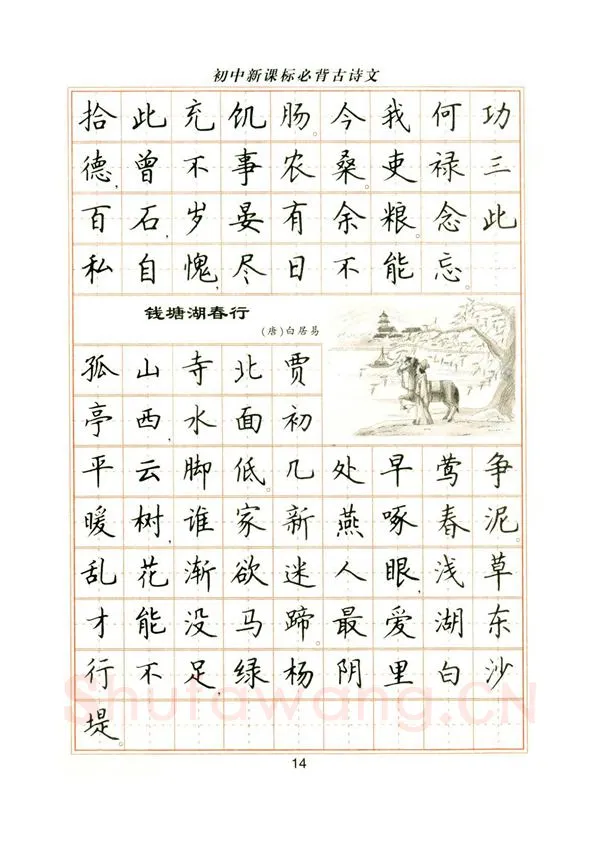 初中新课标必背古诗文
拾此充饥肠。今我何功
德,曾不事农桑。吏禄三
百石,岁晏有余粮。念此
私自愧,尽日不能忘。
钱塘湖春行
(唐)白居易
孤山寺北贾
亭西,水面初
平云脚低。几处早莺争
暖树,谁家新燕啄春泥。
乱花渐欲迷人眼,浅草
才能没马蹄。最爱湖东
行不足,绿杨阴里白沙
堤。
Shufawang.CN
14